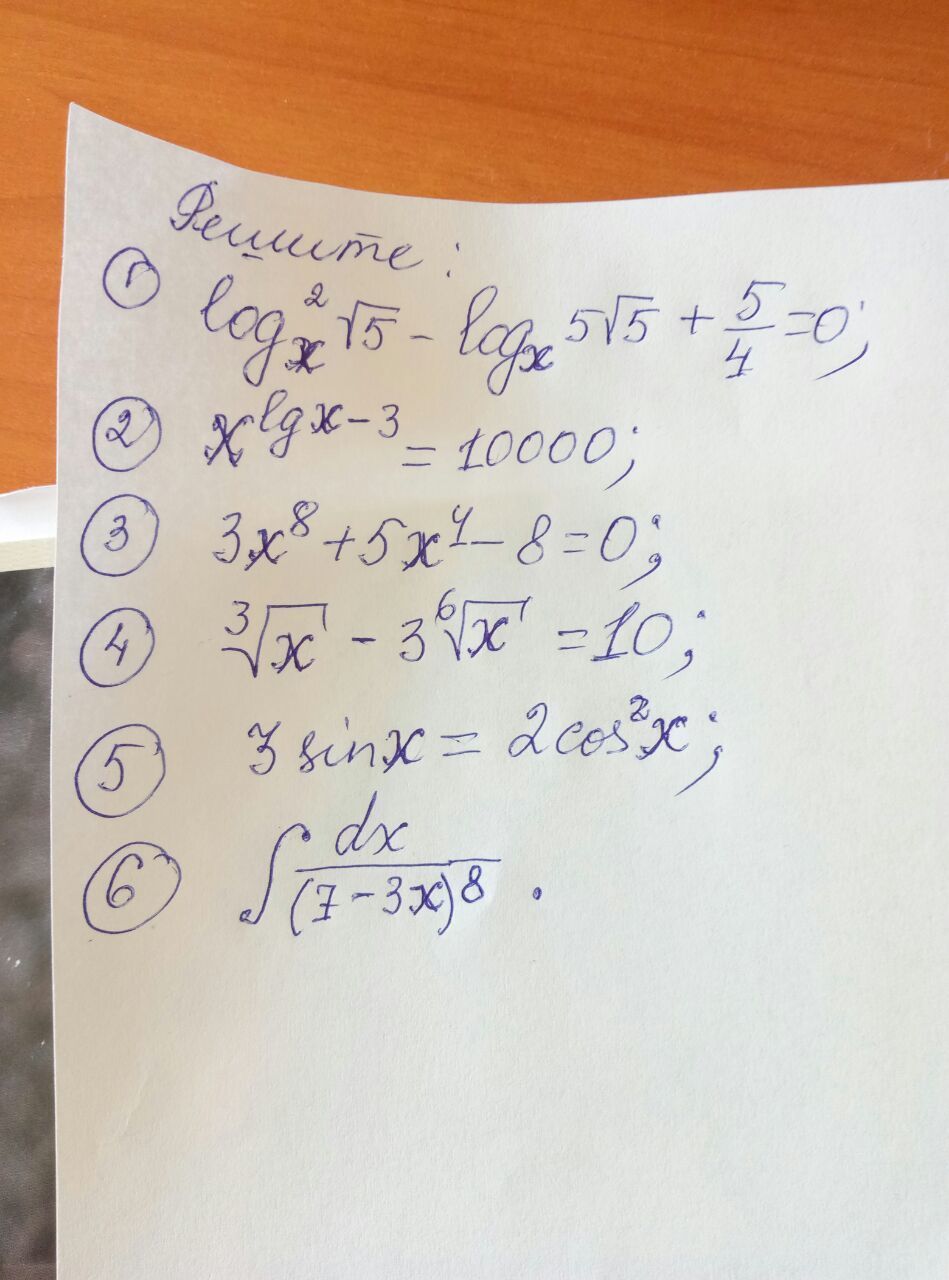 Решите:
① log²ₓ√5 - logₓ5√5 + 5/4 = 0;
② x^(lgx-3) = 10000;
③ 3x⁸ + 5x⁴ - 8 = 0;
④ ³√x - 3⁶√x = 10;
⑤ 3 sinx = 2cos²x;
⑥ ∫dx/(7-3x)⁸.